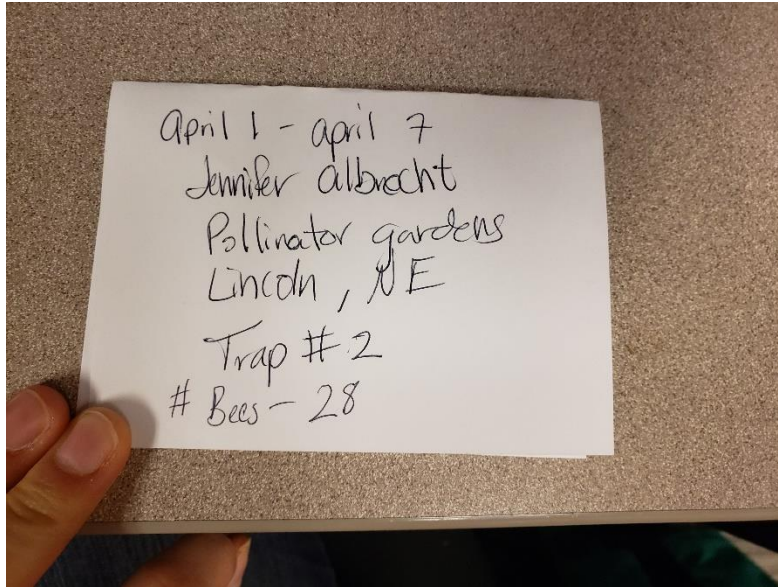 april 1 - april 7
Jennifer albrecht
Pollinator gardens
Lincoln, NE
Trap # 2
# Bees - 28